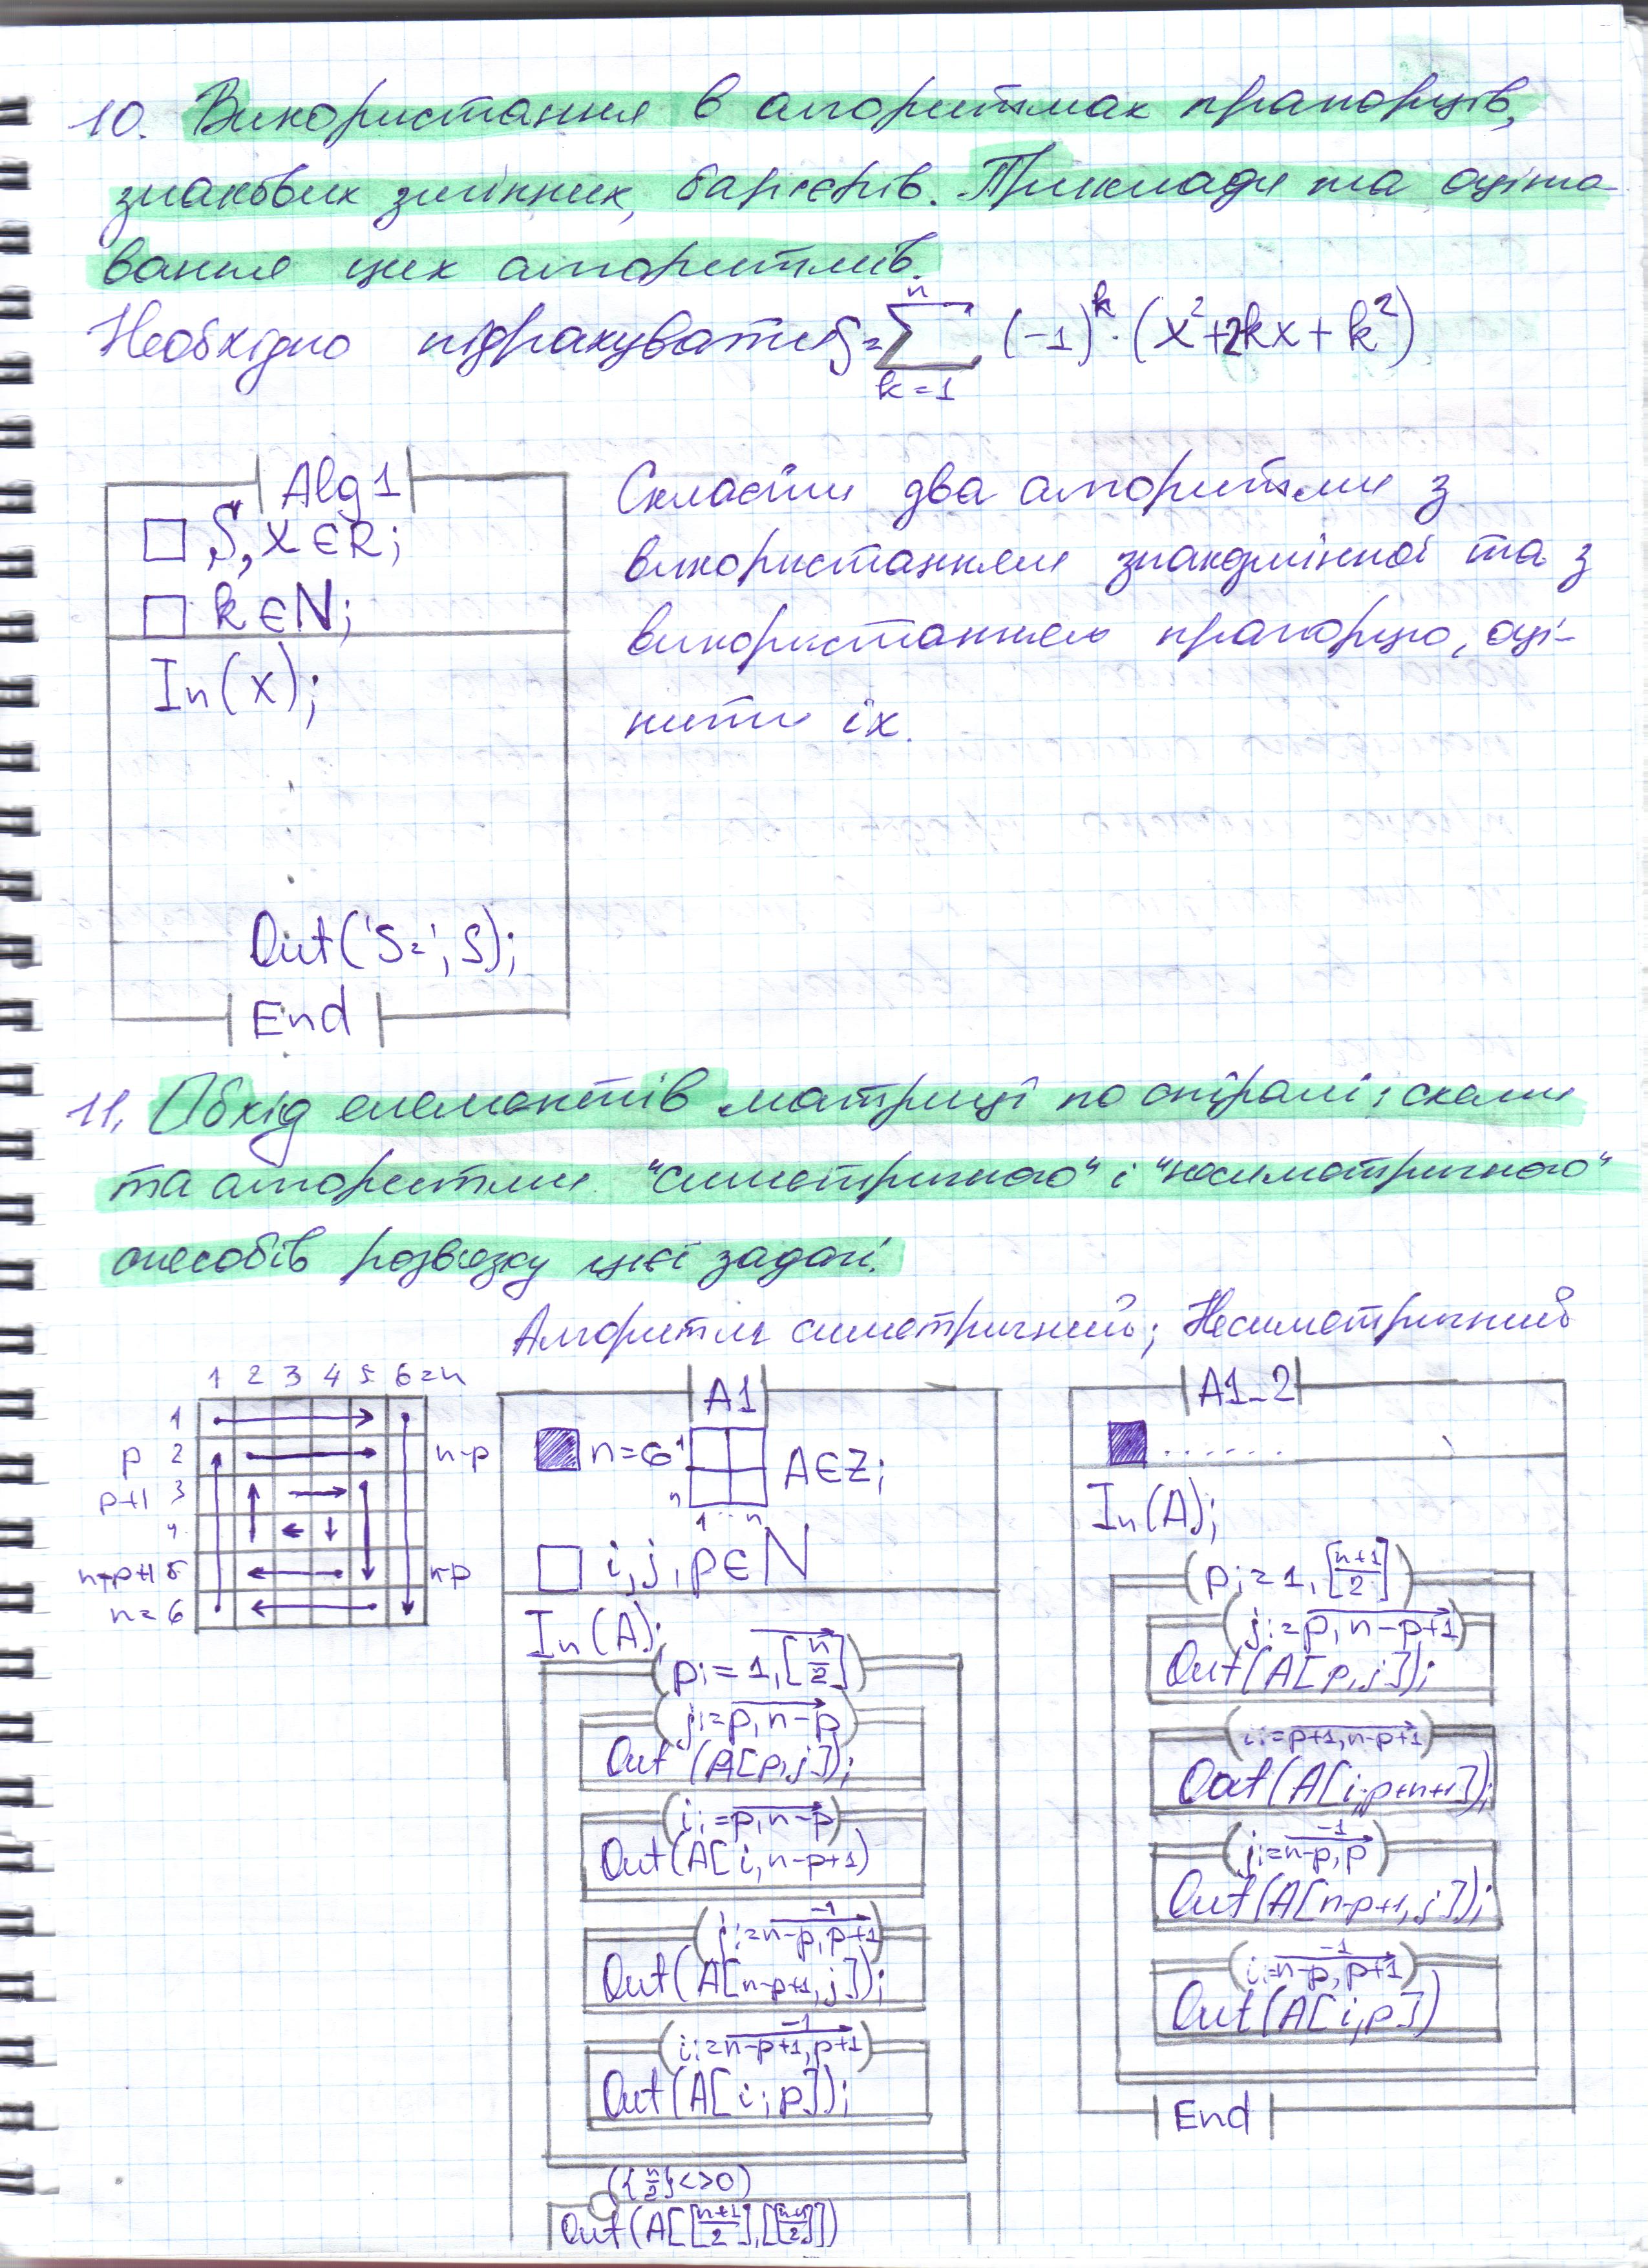 10. Використання в алгоритмах прапорців,
знакових змінних, барєєрів. Приклади та оціню-
вання цих алгоритмів.
Необхідно підрахувати S=∑ (-1)^k·(x²+2kx+k²)
n
k=1
Alg1
S, x ∈R;
k ∈N;
In(x);
Out('S=', S);
End
Скласти два алгоритми з
використанням знакозмінної та з
використанням прапорцю, оці-
нити їх.
11. Обхід елементів матриці по спіралі; схеми
та алгоритми "симетричного" і "несиметричного"
способів розвязку цієї задачі.
Алгоритм симетричний; Несиметричний
1 2 3 4 5 6=n
1
p 2 n-p
p+1 3
4
n-p+1 5 n-p
n=6
A1
n=6 1 A∈Z;
n
1 .. n
i, j, p∈N
In(A);
p:=1,[n/2]
j:=p, n-p
Out (A[p,j]);
i:=p, n-p
Out(A[i, n-p+1)
-1
j:=n-p, p+1
Out(A[n-p+1, j]);
-1
i:=n-p+1, p+1
Out(A[i, p]);
({n/2}<>0)
Out(A[[n+1/2],[n+1/2]])
A1_2
.......
In(A);
p:=1,[n+1/2]
j:=p, n-p+1
Out(A[p,j]);
i:=p+1, n-p+1
Out(A[i, p+n+1]);
-1
j:=n-p, p
Out(A[n-p+1, j]);
-1
i:=n-p, p+1
Out(A[i, p])
End